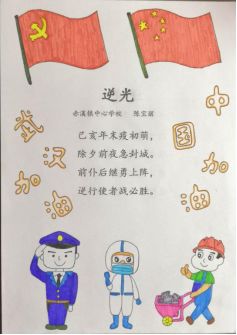 逆光
赤溪镇中心学校 陈宝丽
己亥年末疫初萌，
除夕前夜急封城。
前仆后继勇上阵，
逆行使者战必胜。
武汉加油
中国加油